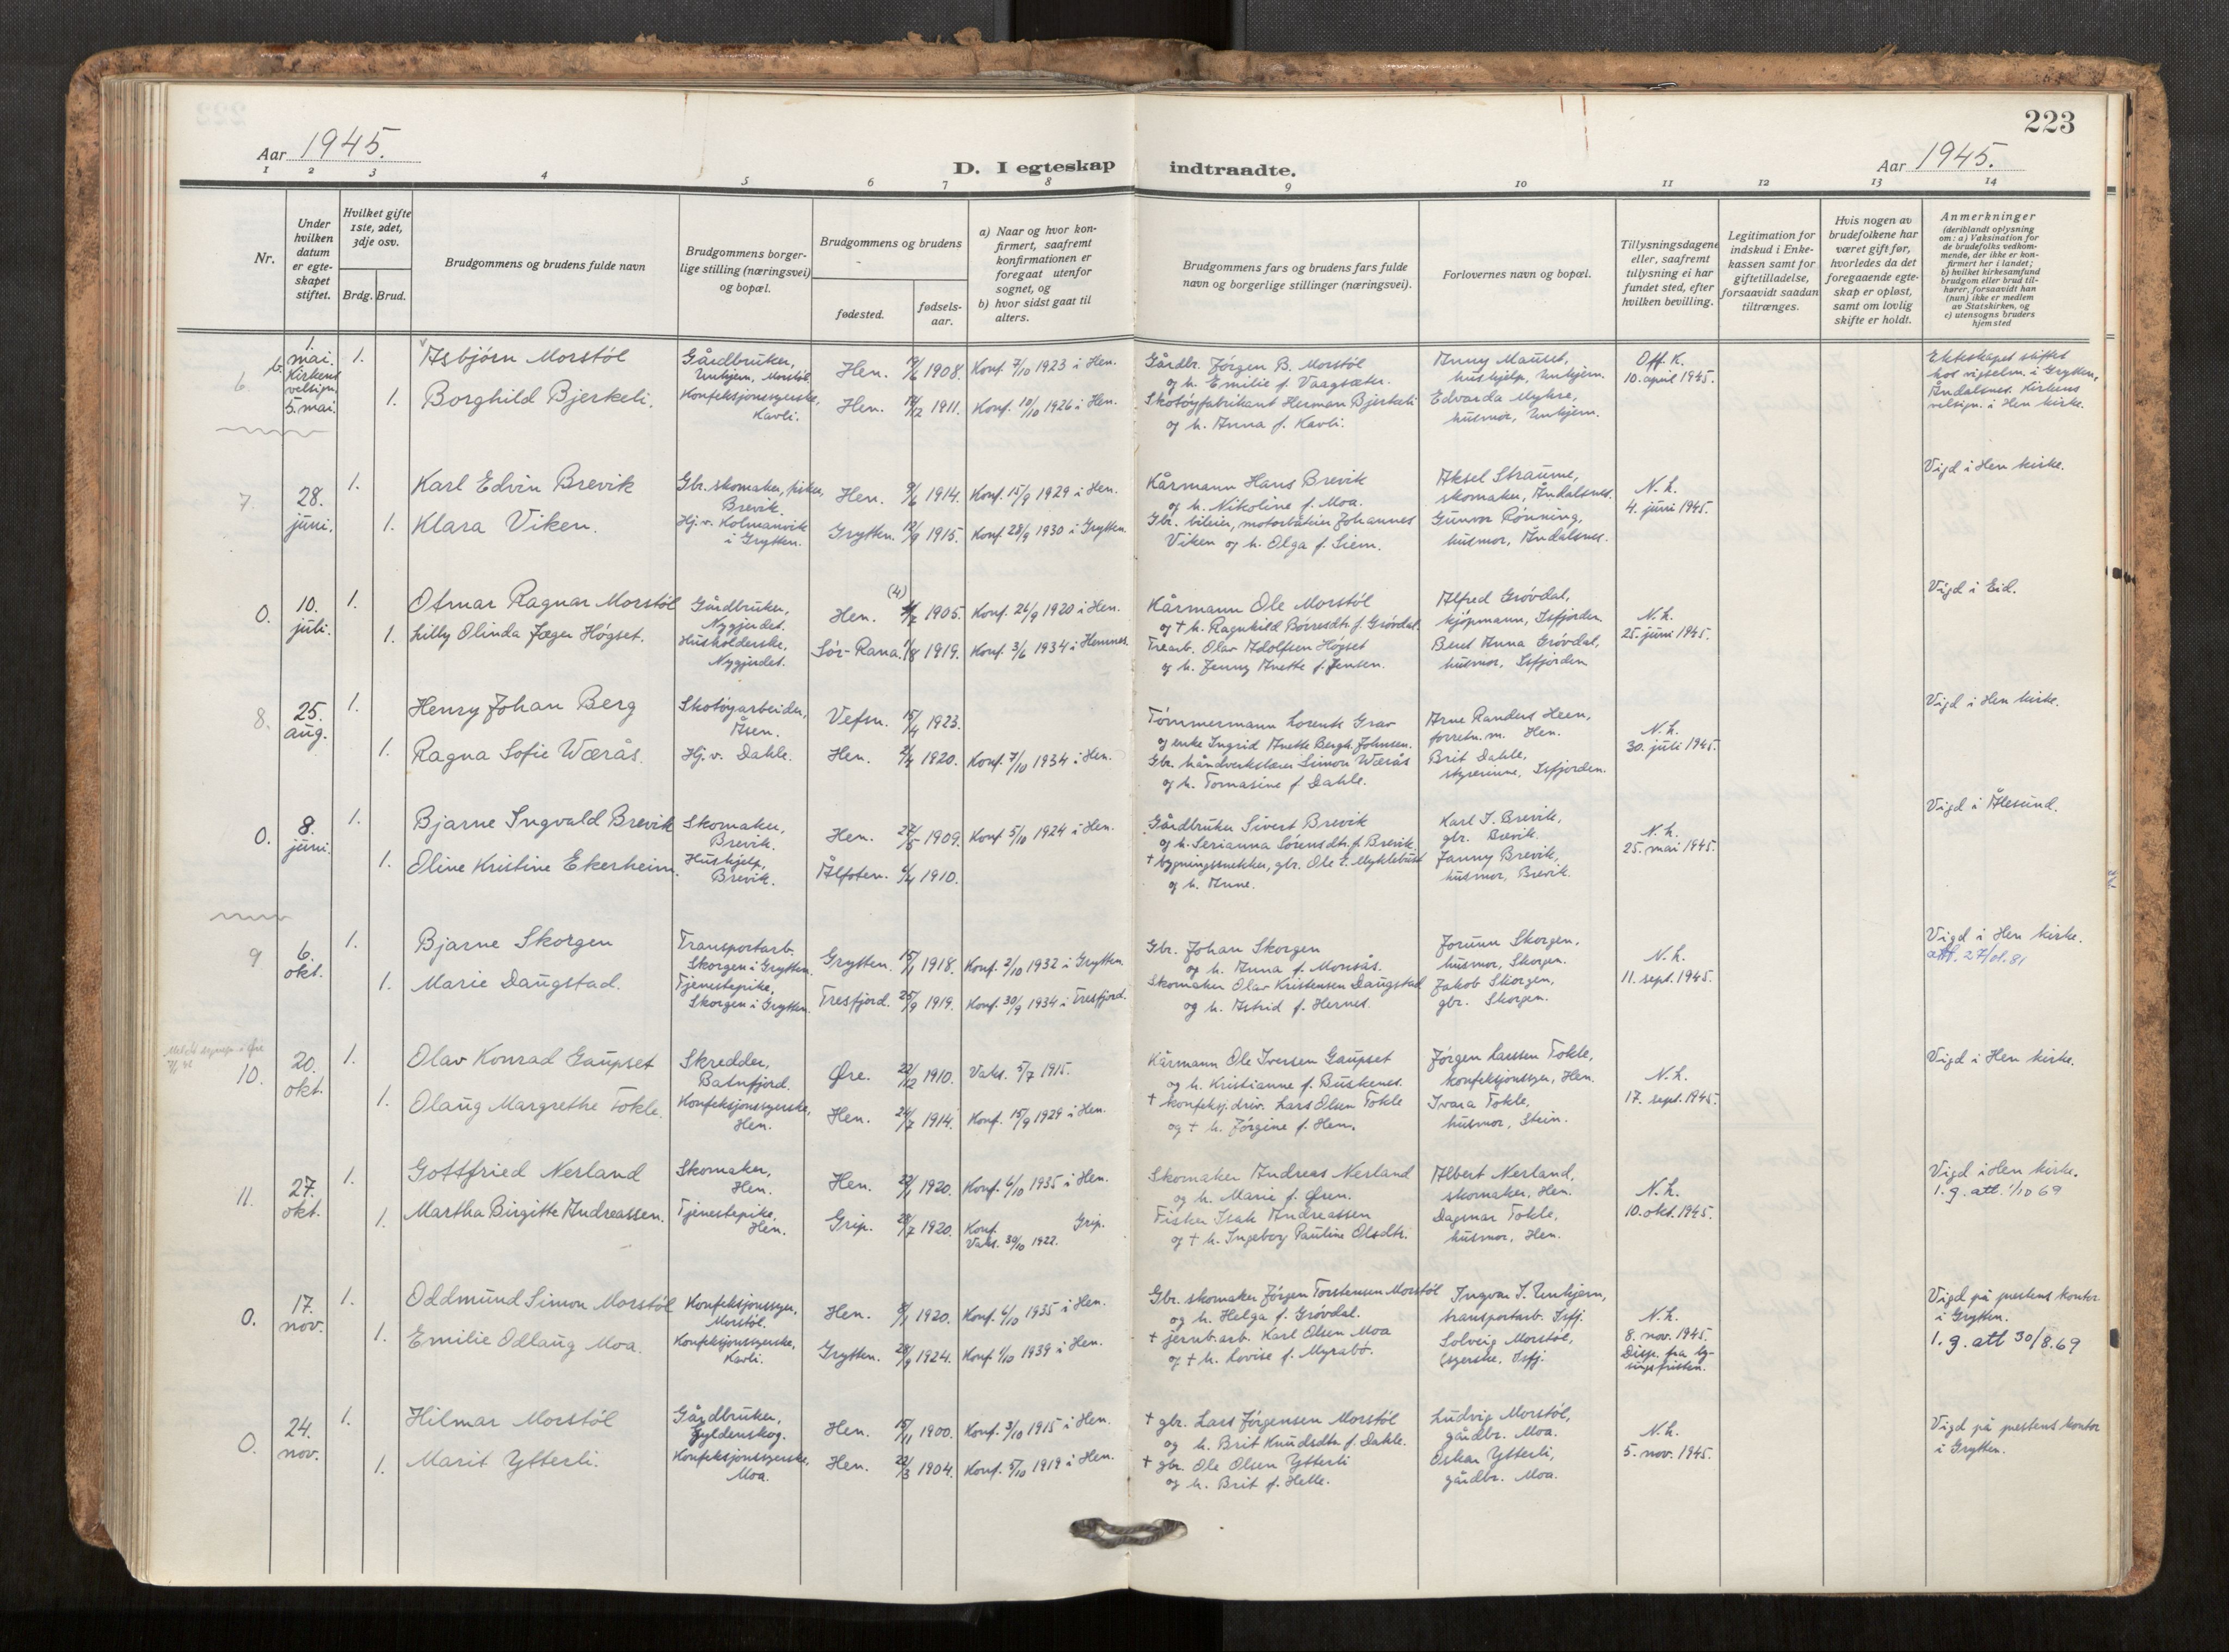 223
Aar 1945.
D. I egteskap indtraadte.
Aar 1945.
1 2 3 4 5 6 7 8 9 10 11 12 13 14
Nr.
Under hvilken datum er egteskapet stiftet.
Hvilket gifte 1ste, 2det, 3dje osv.
Brdg. Brud.
Brudgommens og brudens fulde navn
Brudgommens borgerlige stilling (næringsvei) og bopæl.
Brudgommens og brudens
fødested.
fødselsaar.
a) Naar og hvor konfirmert, saafremt konfirmationen er foregaat utenfor sognet, og
b) hvor sidst gaat til alters.
Brudgommens fars og brudens fars fulde navn og borgerlige stillinger (næringsvei).
Forlovernes navn og bopæl.
Tillysningsdagene eller, saafremt tillysning ei har fundet sted, efter hvilken bevilling.
Legitimation for indskud i Enkekassen samt for giftetilladelse, forsaavidt saadan tiltrænges.
Hvis nogen av brudefolkene har været gift før, hvorledes da det foregaaende egteskap er opløst, samt om lovlig skifte er holdt.
Anmerkninger (deriblandt oplysning om: a) Vaksination for de brudefolks vedkommende, der ikke er konfirmert her i landet; b) hvilket kirkesamfund brudgom eller brud tilhører, forsaavidt han (hun) ikke er medlem av Statskirken, og c) utensogns bruders hjemsted
6. 1. mai. Kirkens velsign. 5. mai.
1. Asbjørn Morstøl
Gårdbruker, Unhjem, Morstøl
Hen. 19/6 1908. Konf. 7/10 1923 i Hen.
Gårdbr. Jørgen B. Morstøl
og h. Emilie f. Vaagsæter.
Anny Mauset,
hushjelp, Unhjem.
Off. K.
10. april 1945.
Ekteskapet stiftet
hos vigselm. i Grytten,
Åndalsnes. Kirkens
velsign. i Hen kirke.
1. Borghild Bjerkeli.
Konfeksjonssyerske, Kavli.
Hen. 12/12 1911. Konf. 10/10 1926 i Hen.
Skotøyfabrikant Herman Bjerkeli
og h. Anna f. Kavli.
Edvarda Myhre,
husmor, Unhjem.
7. 28. juni.
1. Karl Edvin Brevik
Gbr. skomaker, fisker, Brevik.
Hen. 9/6 1914. Konf. 15/9 1929 i Hen.
Kårmann Hans Brevik
og h. Nikoline f. Moa.
Aksel Straume,
skomaker, Åndalsnes.
N. L.
4. juni 1945.
Vigd i Hen kirke.
1. Klara Viken.
Hj. v. Kolmanvik i Grytten.
Grytten. 12/9 1915. Konf. 28/9 1930 i Grytten.
Gbr. bileier, motorbåteier Johannes
Viken og h. Olga f. Siem.
Gunvor Rønning,
husmor, Åndalsnes.
0. 10. juli.
1. Otmar Ragnar Morstøl
Gårdbruker, Nygjerdet.
Hen. (4) 4/7 1905. Konf. 26/9 1920 i Hen.
Kårmann Ole Morstøl
og † h. Ragnhild Børresdtr. f. Grøvdal.
Alfred Grøvdal,
kjøpmann, Isfjorden.
N. L.
25. juni 1945.
Vigd i Eid.
1. Lilly Olinda Jæger Høgset.
Husholderske, Nygjerdet.
Sør-Rana. 1/8 1919. Konf. 3/6 1934 i Hemnes.
Trearb. Olav Adolfsen Høgset
og h. Jenny Anette f. Jensen.
Berit Anna Grøvdal,
husmor, Isfjorden
8. 25. aug.
1. Henry Johan Berg
Skotøyarbeider, Åsen.
Vefsn. 15/4 1923.
Tømmermann Lorents Grav
og enke Ingrid Anette Bergh. Johnsen.
Arne Randers Heen,
forretn. m. Hen.
N. L.
30. juli 1945.
Vigd i Hen kirke.
1. Ragna Sofie Wærås.
Hj. v. Dahle.
Hen. 2/4 1920. Konf. 7/10 1934 i Hen.
Gbr. håndverkslærer Simon Wærås
og h. Tomasine f. Dahle.
Brit Dahle,
styrerinne, Isfjorden.
0. 8. juni.
1. Bjarne Ingvald Brevik
Skomaker, Brevik.
Hen. 27/5 1909. Konf. 5/10 1924 i Hen.
Gårdbruker Sivert Brevik
og h. Serianna Sørensdtr. f. Brevik.
Karl I. Brevik,
gbr. Brevik.
N. L.
25. mai 1945.
Vigd i Ålesund.
1. Oline Kristine Ekerheim.
Hushjelp, Brevik.
Ålfoten. 6/4 1910.
† bygningssnekker, gbr. Ole E. Myklebust
og h. Anne.
Janny Brevik,
husmor, Brevik.
9 6. okt.
1. Bjarne Skorgen
Transportarb. Skorgen i Grytten.
Grytten. 15/1 1918. Konf. 2/10 1932 i Grytten.
Gbr. Johan Skorgen
og h. Anna f. Monsås.
Jorunn Skorgen,
husmor, Skorgen.
N. L.
11. sept. 1945.
Vigd i Hen kirke.
att. 27/01.81
1. Marie Daugstad.
Tjenestepike, Skorgen i Grytten.
Tresfjord. 25/9 1919. Konf. 30/9 1934 i Tresfjord.
Skomaker Olav Kristensen Daugstad
og h. Astrid f. Hernes.
Jakob Skorgen,
gbr. Skorgen.
10. 20. okt.
1. Olav Konrad Gaupset
Skredder, Batnfjord.
Øre. 22/12 1910. Vaks. 5/7 1915.
Kårmann Ole Iversen Gaupset
og h. Kristianne f. Buskenes.
Jørgen Larssen Tokle,
konfeksjonssyer, Hen.
N. L.
17. sept. 1945.
Vigd i Hen kirke.
1. Olaug Margrethe Tokle.
Konfeksjonssyerske, Hen.
Hen. 24/7 1914. Konf. 15/9 1929 i Hen.
† konfeksj.driv. Lars Olsen Tokle
og † h. Jørgine f. Hen.
Ivara Tokle,
husmor, Stein.
11. 27. okt.
1. Gottfried Nerland
Skomaker, Hen.
Hen. 22/1 1920. Konf. 6/10 1935 i Hen.
Skomaker Andreas Nerland
og h. Marie f. Øren.
Albert Nerland,
skomaker, Hen.
N. L.
10. okt. 1945.
Vigd i Hen kirke.
1. g. att. 1/10 69
1. Martha Birgitte Andreassen.
Tjenestepike, Hen.
Grip. 28/7 1920. Konf. Grip.
Vaks. 30/10 1922.
Fisker Isak Andreassen
og † h. Ingeborg Pauline Olsdtr.
Dagmar Tokle,
husmor, Hen.
0. 17. nov.
1. Oddmund Simon Morstøl
Konfeksjonssyer, Morstøl.
Hen. 8/1 1920. Konf. 6/10 1935 i Hen.
Gbr. skomaker Jørgen Torstensen Morstøl
og h. Helga f. Grøvdal.
Ingvar I. Unhjem,
transportarb. Isfj.
N. L.
8. nov. 1945.
Disp. fra lysingsfristen.
Vigd på prestens kontor
i Grytten.
1. g. att 30/8.69
1. Emilie Odlaug Moa.
Konfeksjonssyerske, Kavli.
Grytten. 28/9 1924. Konf. 1/10 1939 i Hen.
† jernb.arb. Karl Olsen Moa
og † h. Lovise f. Myrabø.
Solveig Morstøl,
syerske, Isfj.
0. 24. nov.
1. Hilmar Morstøl
Gårdbruker, Gyldenskog.
Hen. 15/11 1900. Konf. 3/10 1915 i Hen.
† gbr. Lars Jørgensen Morstøl
og h. Brit Knudsdtr. f. Dahle.
Ludvig Morstøl,
gårdbr. Moa.
N. L.
5. nov. 1945.
Vigd på prestens kontor
i Grytten.
1. Marit Ytterli.
Konfeksjonssyerske, Moa.
Hen. 22/3 1904. Konf. 5/10 1919 i Hen.
† gbr. Ole Olsen Ytterli
og h. Brit f. Helle.
Oskar Ytterli,
gårdbr. Moa.